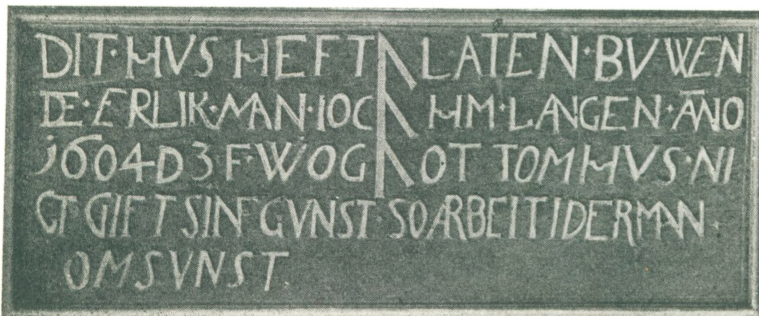 DIT·HVS HEFT LATEN·BVWEN
DE·ERLIK·MAN·IOC HM·LANGEN·AÑO
1604 D 3 F·WO G OT TOM HVS·NI
CT GIFT SIN GVNST·SO ARBEIT IDERMAN·
OMSVNST